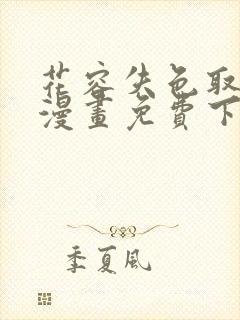 花容失色取
漫畫免費下
季夏風